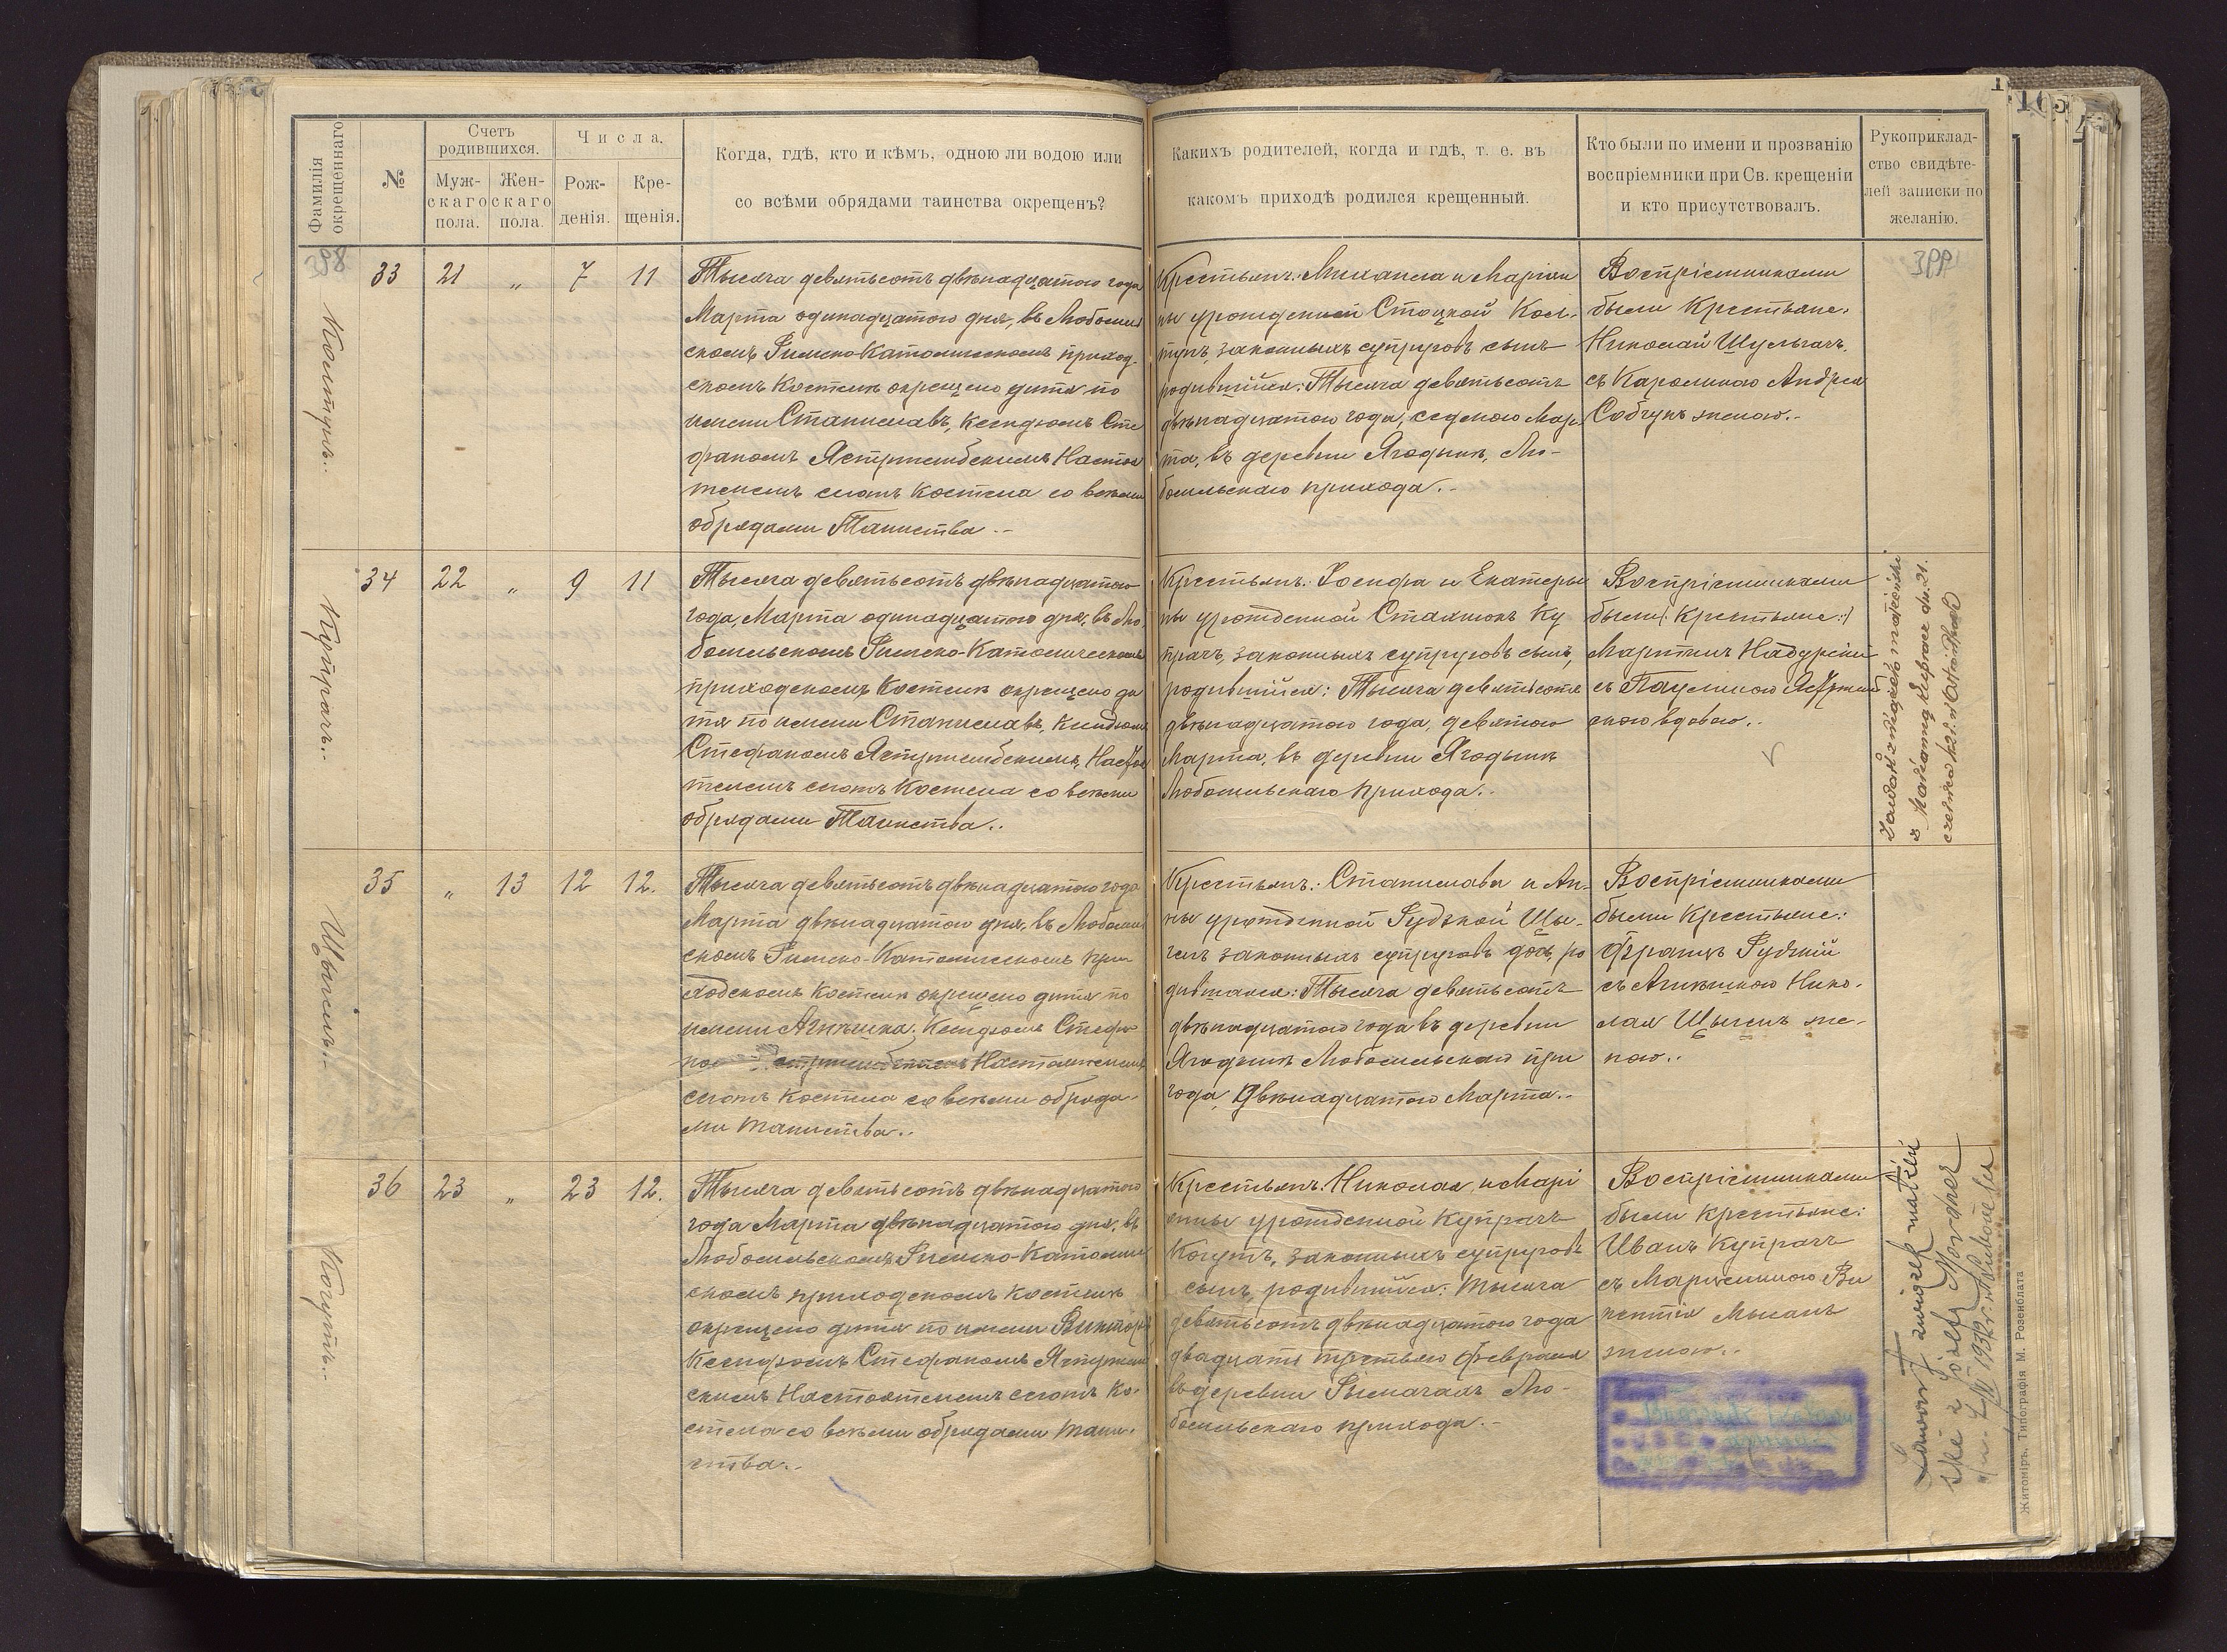 Фамилія окрещеннаго
№
Счетъ родившихся.
Мужскаго пола.
Женскаго пола.
Числа.
Рожденія.
Крещенія.
Когда, гдѣ, кто и кѣмъ, одною ли водою или
со всѣми обрядами таинства окрещенъ?
Какихъ родителей, когда и гдѣ, т. е. въ
какомъ приходѣ родился крещенный.
Кто были по имени и прозванію
воспріемники при Св. крещеніи
и кто присутствовалъ.
Рукоприклад-
ство свидѣте-
лей записки по
желанію.
398
33 21 „ 7 11
Тысяча девятьсотъ двѣнадцатого года
Марта одинадцатого дня, въ Любомль
скомъ Римско-Католическомъ приход-
скомъ Костелѣ окрещено дитя по
имени Станиславъ, Ксендзомъ Сте
фаномъ Ястржембскимъ Настоя
телемъ сего Костела со всѣми
обрядами Таинства.-
Крестьянъ: Михаила и Маріан
ны урожденной Стоцкой Кол-
тунъ, законныхъ супруговъ сынъ
родившійся: Тысяча девятьсотъ
двѣнадцатого года, седмого Мар-
та, въ деревни Ягодинѣ, Лю-
бомльскаго прихода.-
Воспріемниками
были Крестьяне:
Николай Шульгачъ,
съ Каролиною Андрея
Собчукъ женою.-
399
34 22 „ 9 11
Купрачъ.
Тысяча девятьсотъ двѣнадцатого
года, Марта одинадцатого дня, въ Лю
бомльскомъ Римско-Католическомъ
приходскомъ Костелѣ окрещено ди
тя по имени Станиславъ, Ксендзомъ
Стефаномъ Ястржембскимъ, Настоя
телемъ сего Костела со всѣми
обрядами Таинства..
Крестьянъ: Іосифа и Екатери
ны урожденной Стахнюкъ Ку
прачъ, законныхъ супруговъ сынъ,
родившійся: Тысяча девятьсотъ
двѣнадцатого года, девятого
Марта, въ деревни Ягодинѣ
Любомльскаго прихода..
Воспріемниками
были: Крестьяне:
Мартинъ
съ Паулиною
вдовою..
35 „ 13 12 12.
Тысяча девятьсотъ двѣнадцатого года
Марта двѣнадцатого дня, въ Любомль
скомъ Римско-Католическомъ при
ходскомъ Костелѣ окрещено дитя по
имени Агнѣшка, Ксендзомъ Стефа
Настоятелемъ
сего Костела со всѣми обряда-
ми таинства..
Крестьянъ: Станислава и Ан-
ны урожденной Рудзкой
законныхъ супруговъ дочь, ро
дившаяся: Тысяча девятьсотъ
двѣнадцатого года въ деревни
Ягодинѣ Любомльскаго при
хода, двѣнадцатого Марта..
Воспріемниками
были Крестьяне:
Францъ Рудзкій
съ Агнѣшкою Нико-
лая же-
ною..
36 23 „ 23 12.
Когутъ.
Тысяча девятьсотъ двѣнадцатого
года Марта двѣнадцатого дня, въ
Любомльскомъ Римско-Католиче
скомъ приходскомъ Костелѣ
окрещено дитя по имени Викторъ
Ксендзомъ Стефаномъ Ястржемб
скимъ Настоятелемъ сего Ко-
стела со всѣми обрядами таин-
ства..
Крестьянъ: Николая и Марі
анны урожденной Купрачъ
Когутъ, законныхъ супруговъ
сынъ, родившійся: тысяча
девятьсотъ двѣнадцатого года
двадцать третьяго Февраля
въ деревни Рымачахъ Лю-
бомльскаго прихода.-
Воспріемниками
были Крестьяне:
Иванъ Купрачъ
съ Марцелиною Ви
кентія
женою..
Zawarł związek małżeń
ski z Józefą
Житоміръ. Типографія М. Розенблата